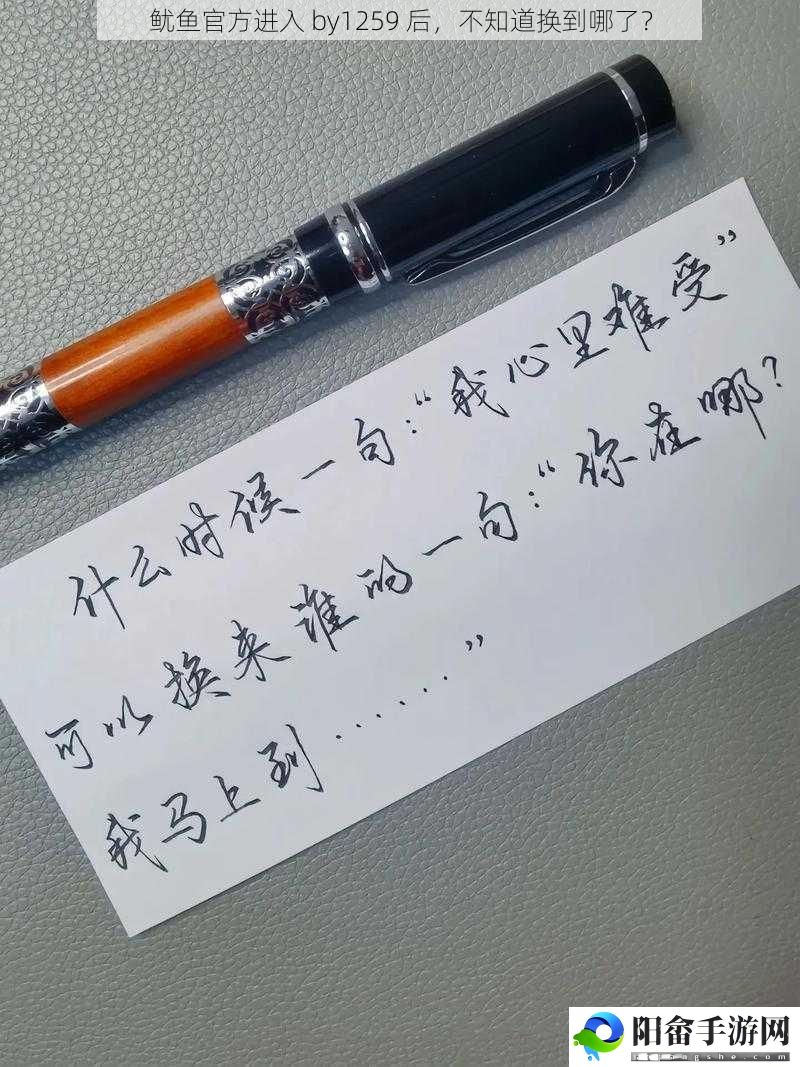 鱿鱼官方进入 by1259 后，不知道换到哪了？
什么时候一句：“我心里难受”
可以换来谁的一句：“你在哪？
我马上到······”
阳畲手游网